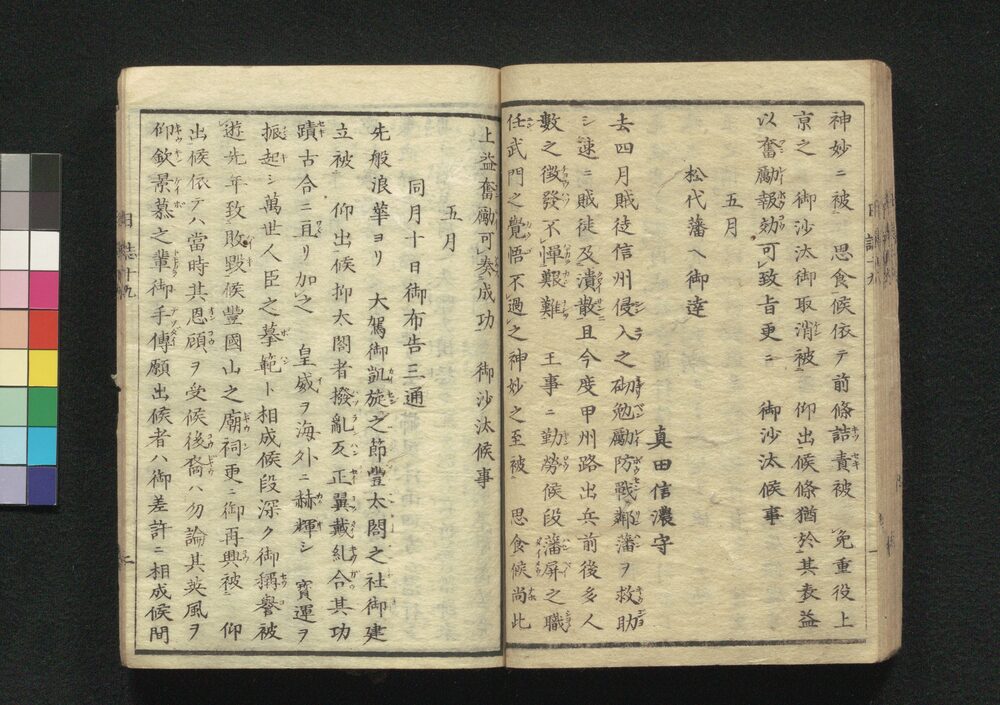 神妙ニ被　思食候依テ前條詰責被　免重役上
京之　御沙汰御取消被　仰出候條猶於其表益
以奮勵報効可致旨更ニ　御沙汰候事
五月
松代藩ヘ御達
真田信濃守
去四月賊徒信州侵入之砌勉勵防戰鄰藩ヲ救助
シ速ニ賊徒及潰散且今度甲州路出兵前後多人
數之徴發不憚艱難　王事ニ勤勞候段藩屏之職
任武門之覺悟不過之神妙之至被　思食候尚此
上益奮勵可奏成功　御沙汰候事
五月
同月十日御布告三通
先般浪華ヨリ　大駕御凱旋之節豐太閤之社御建
立被　仰出候抑太閤者撥亂反正翼戴糺合其功
蹟古今ニ亘リ加之　皇威ヲ海外ニ赫輝シ　寳運ヲ
振起シ萬世人臣之摹範ト相成候段深ク御稱譽被
遊先年致敗毀候豐國山之廟祠更ニ御再興被　仰
出候依テハ當時其恩顧ヲ受候後裔ハ勿論其英風ヲ
仰欽景慕之輩御手傳願出候者ハ御差許ニ相成候間
日誌十九